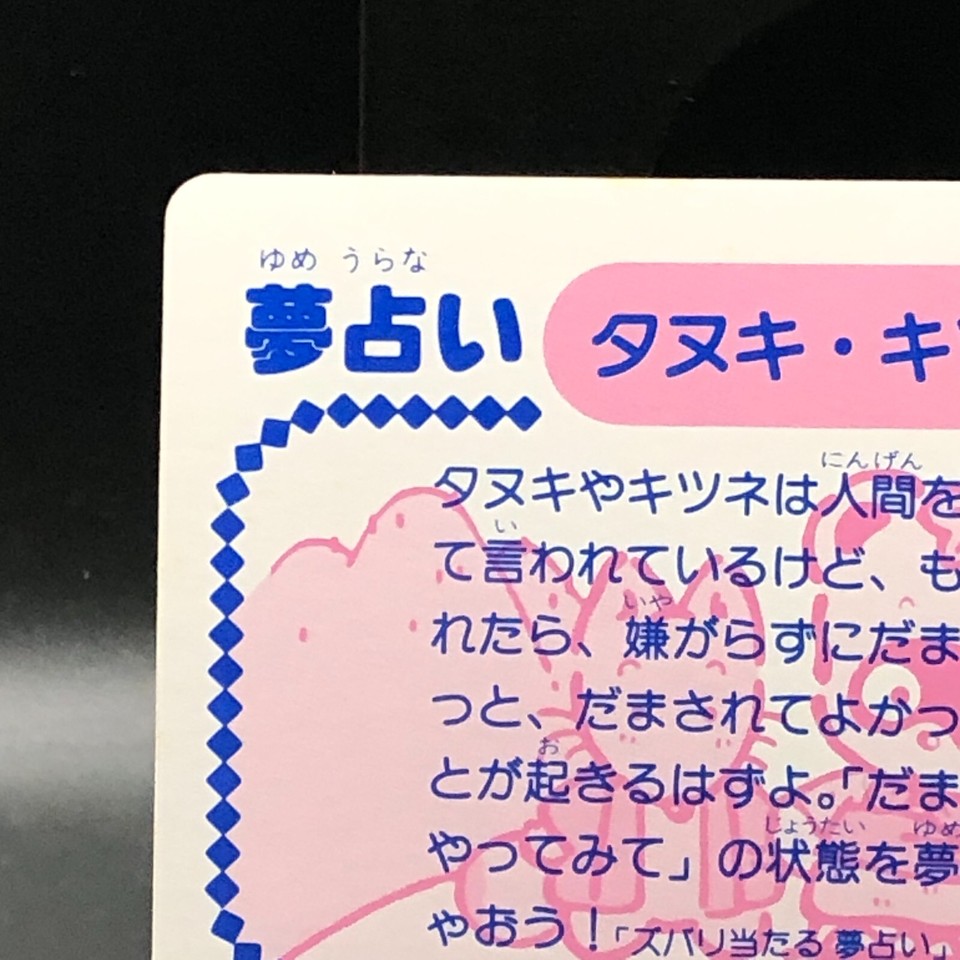 ゆめ うらな
夢占い
タヌキ・キ
にんげん
タヌキやキツネは人間を
い
て言われているけど、も
いや
れたら、嫌がらずにだま
っと、だまされてよかっ
お
とが起きるはずよ。「だま
じょうたい ゆめ
やってみて」の状態を夢
ゃおう！「ズバリ当たる 夢占い」